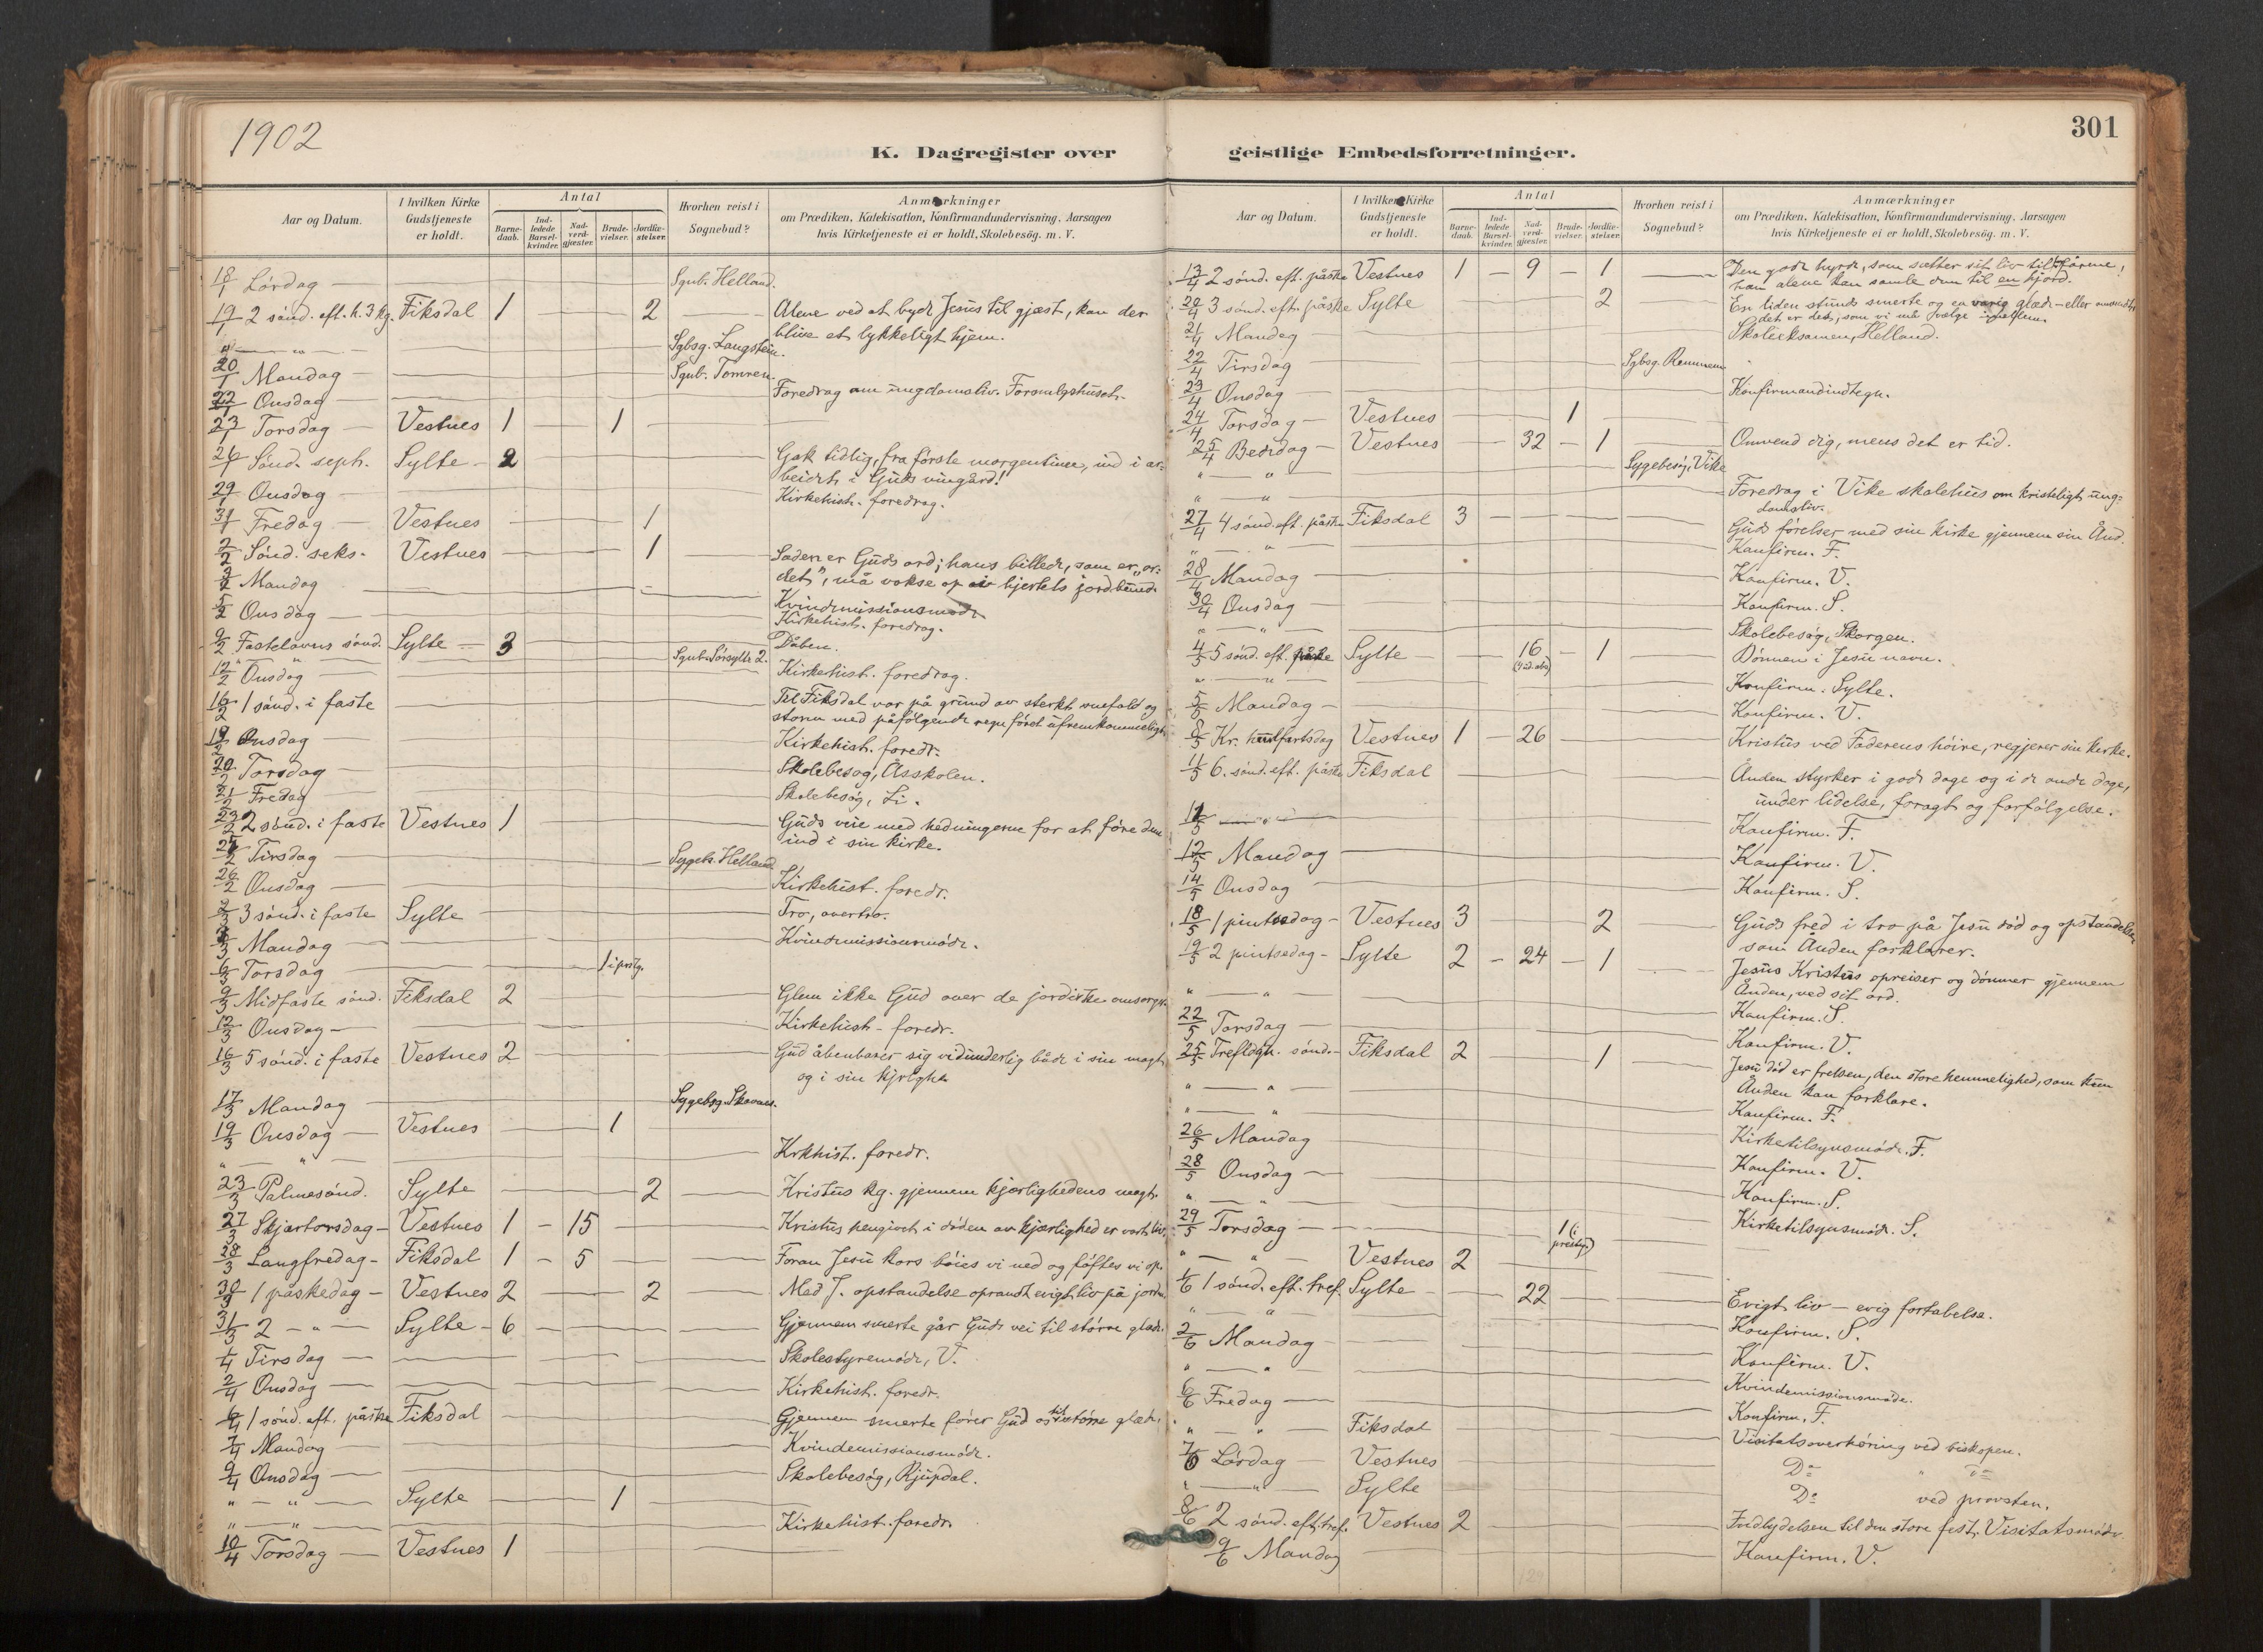 1902
301
K. Dagregister over geistlige Embedsforretninger.
Aar og Datum.
I hvilken Kirke Gudstjeneste er holdt.
Antal
Barne-daab.
Ind-ledede Barsel-kvinder.
Nad-verd-gjæster.
Brude-vielser.
Jordfæ-stelser.
Hvorhen reist i Sognebud?
Anmærkninger
om Prædiken, Katekisation, Konfirmandundervisning, Aarsagen
hvis Kirketjeneste ei er holdt, Skolebesög. m. V.
18/1 Lørdag — Sgnb. Helland.
19/1 2 sönd. eft. h. 3 kg. Fiksdal 1 — 2 — Alene ved at byde Jesus til gjæst, kan der
blive et lykkeligt hjem.
" — " — Sgbsg. Langstein.
20/1 Mandag — Sgnb. Tomren.
22/1 Onsdag — Foredrag om ungdomsliv. Forsmlgshuset.
23/1 Torsdag — Vestnes 1 — 1 —
26/1 Sönd. seph. Sylte — 2 — Gak tidlig, fra første morgentime, ind i ar-
beidet i Guds vingård!
29/1 Onsdag — Kirkehist. foredrag.
31/1 Fredag — Vestnes — 1
2/2 Sönd. seks. Vestnes — 1 — Sæden er Guds ord; hans billede, som er "or-
det", må vokse op i hjertets jordbund.
3/2 Mandag — Kvindemissionsmøde
5/2 Onsdag — Kirkehist. foredrag.
9/2 Fastelavns sönd. Sylte — 3 — Dåben.
" " Sgnb. Sørsylte 2.
12/2 Onsdag — Kirkehist. foredrag.
16/2 1 sönd. i faste Til Fiksdal var på grund av sterkt snefald og
storm med påfölgende regn føret ufremkommeligt.
19/2 Onsdag — Kirkehist. foredr.
20/2 Torsdag — Skolebesøg, Åsskolen.
21/2 Fredag — Skolebesøg, Li.
23/2 2 sönd. i faste Vestnes 1 — Guds veie med hedningerne for at føre dem
ind i sin kirke.
25/2 Tirsdag — Sygeb. Helland
26/2 Onsdag — Kirkehist. foredr.
2/3 3 sönd. i faste Sylte — Tro, overtro.
3/3 Mandag — Kvindemissionsmøde.
6/3 Torsdag — 1 i prstg.
9/3 Midfaste sönd. Fiksdal 2 — Glem ikke Gud over de jordiske omsorger.
12/3 Onsdag — Kirkehist. foredr.
16/3 5 sönd. i faste Vestnes 2 — Gud åbenbarer sig vidunderlig både i sin magt
og i sin kjrlghet
17/3 Mandag — Sygebsg. Skavnes.
19/3 Onsdag — Vestnes — 1 —
" — " — Krkhist. foredr.
23/3 Palmesönd. Sylte — 2 — Kristus kg. gjennem kjærlighedens magt.
27/3 Skjærtorsdag — Vestnes 1 — 15 — Kristus hengivet i døden av kjærlighed er vort liv.
28/3 Langfredag — Fiksdal 1 — 5 — Foran Jesu kors böies vi ned og løftes vi op.
30/3 1 påskedag — Vestnes 2 — 2 — Med J. opstandelse oprandt evigt liv på jorden.
31/3 2 — " — Sylte — 6 — Gjennem smerte går Guds vei til större glæde.
1/4 Tirsdag — Skolestyremøde, V.
2/4 Onsdag — Kirkehist. foredr.
6/4 1 sönd. eft. påske Fiksdal — Gjennem smerte fører Gud os til större glæde.
7/4 Mandag — Kvindemissionsmøde.
9/4 Onsdag — Skolebesøg, Kjupdal.
" — " — Sylte — 1 —
" — " — Kirkehist. foredr.
10/4 Torsdag — Vestnes 1 —
Aar og Datum.
I hvilken Kirke Gudstjeneste er holdt.
Antal
Barne-daab.
Ind-ledede Barsel-kvinder.
Nad-verd-gjæster.
Brude-vielser.
Jordfæ-stelser.
Hvorhen reist i Sognebud?
Anmærkninger
om Prædiken, Katekisation, Konfirmandundervisning, Aarsagen
hvis Kirketjeneste ei er holdt, Skolebesög. m. V.
13/4 2 sönd. eft. påske Vestnes 1 — 9 — 1 — Den gode hyrde, som sætter sit liv til for fårene,
han alene kan samle dem til en hjord.
20/4 3 sönd. eft. påske Sylte 2 — En liden stunds smerte og en varig glæde — eller omvendt,
det er det, som vi må vælge imellem.
21/4 Mandag — Skoleeksamen, Helland.
22/4 Tirsdag — Sgbsg. Remmem
23/4 Onsdag — Konfirmandindtegn.
24/4 Torsdag — Vestnes — 1 —
25/4 Bededag — Vestnes — 32 — 1 — Omvend dig, mens det er tid.
" — " Sygebesög, Vike
" — " — Foredrag i Vike skolehus om kristeligt ung-
domsliv.
27/4 4 sönd. eft. påske Fiksdal 3 — Guds førelser med sin kirke gjennem sin Ånd.
" — " — Konfirm. F.
28/4 Mandag — Konfirm. V.
30/4 Onsdag — Konfirm. S.
" — " — Skolebesøg, Skorgen.
4/5 5 sönd. eft. påske Sylte — 16 — 1 — Bønnen i Jesu navn.
" — " — Konfirm. Sylte.
5/5 Mandag — Konfirm. V.
8/5 Kr. himlfartsdag Vestnes 1 — 26 — Kristus ved Faderens høire, regjerer sin kirke.
11/5 6. sönd. eft. påske Fiksdal — Ånden styrker i gode dage og i de onde dage,
under lidelse, foragt og forfölgelse.
11/5 — " — Konfirm. F.
12/5 Mandag — Konfirm. V.
14/5 Onsdag — Konfirm. S.
18/5 1 pintsedag — Vestnes 3 — 2 — Guds fred i tro på Jesu död og opstandelse,
som Ånden forklarer.
19/5 2 pintsedag — Sylte 2 — 24 — 1 — Jesus Kristus opreiser og dømmer gjennem
Ånden, ved sit ord.
" — " — Konfirm. S.
22/5 Torsdag — Konfirm. V.
25/5 Trefldgh. sönd. — Fiksdal 2 — 1 — Jesu död er frelsen, den store hemmelighed, som kun
Ånden kan forklare.
" — " — Konfirm. F.
" — " Kirketilsynsmøde. F.
26/5 Mandag — Konfirm. V.
28/5 Onsdag — Konfirm. S.
" — " Kirketilsynsmøde. S.
29/5 Torsdag — 1 (i prestg.)
" — " Vestnes 2 —
1/6 1 sönd. eft. tref. Sylte — 22 — Evigt liv — evig fortabelse.
" — " Konfirm. S.
2/6 Mandag — Konfirm. V.
" — " Kvindemissionsmøde.
6/6 Fredag — Konfirm. F.
" — " — Fiksdal Visitatsoverhöring ved biskopen.
7/6 Lördag — Vestnes Do " Do
" — " — Sylte Do ved provsten.
8/6 2 sönd. eft. tref. Vestnes 2 — Indbydelsen til den store fest. Visitatsmøde
9/6 Mandag — Konfirm. V.